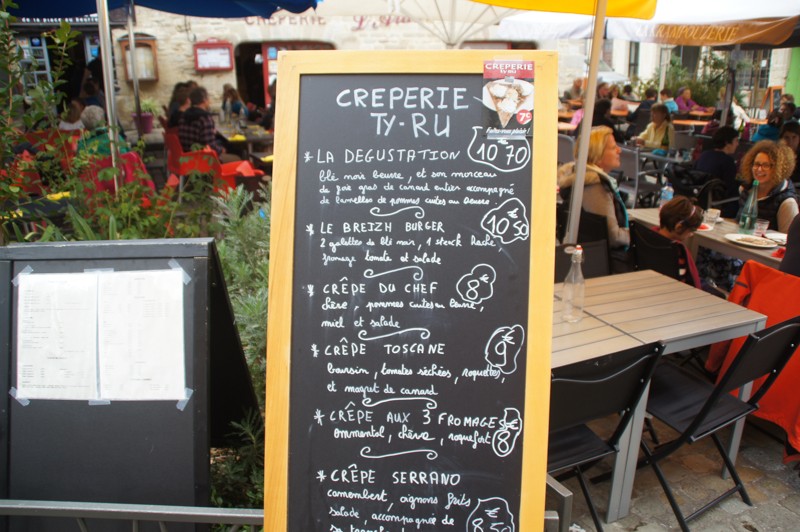 CREPERIE
CREPERIE
TY-RU
7€
CREPERIE
TY·RU
* LA DEGUSTATION 10€70
blé noir beurre, et son morceau
de foie gras de canard entier accompagné
de lamelles de pommes cuites au beurre
* LE BREIZH BURGER 10€50
2 galettes de blé noir, 1 steack haché,
fromage tomate et salade
* CRÊPE DU CHEF 8€
chèvre, pommes cuites au beurre,
miel et salade
* CRÊPE TOSCANE 9€
boursin, tomates séchées, roquettes,
et magret de canard
* CRÊPE AUX 3 FROMAGES 8€
emmental, chèvre, roquefort
* CRÊPE SERRANO 8€50
camembert, oignons frits
salade, accompagnée de